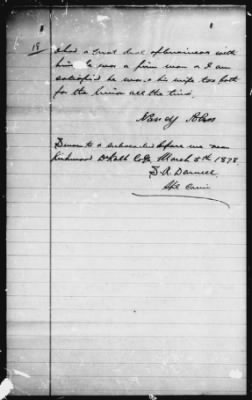 19 I had a great deal of business with
him he was a firm man & I am
satisfied he was & his wife too both
for the Union all the time.
Nancy
Sworn to & subscribed before me near
Kirkwood DeKalb Co Ga March 5th 1878
Spl Com